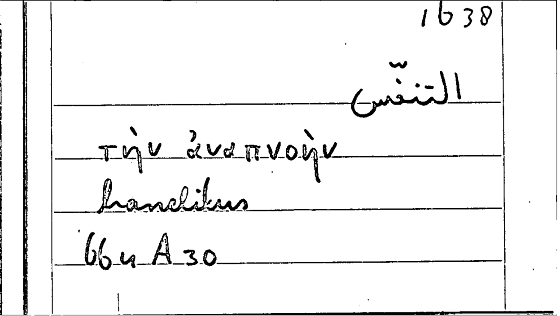 1638
التنفّس
τὴν ἀναπνοὴν
hanelitus
664 A 30